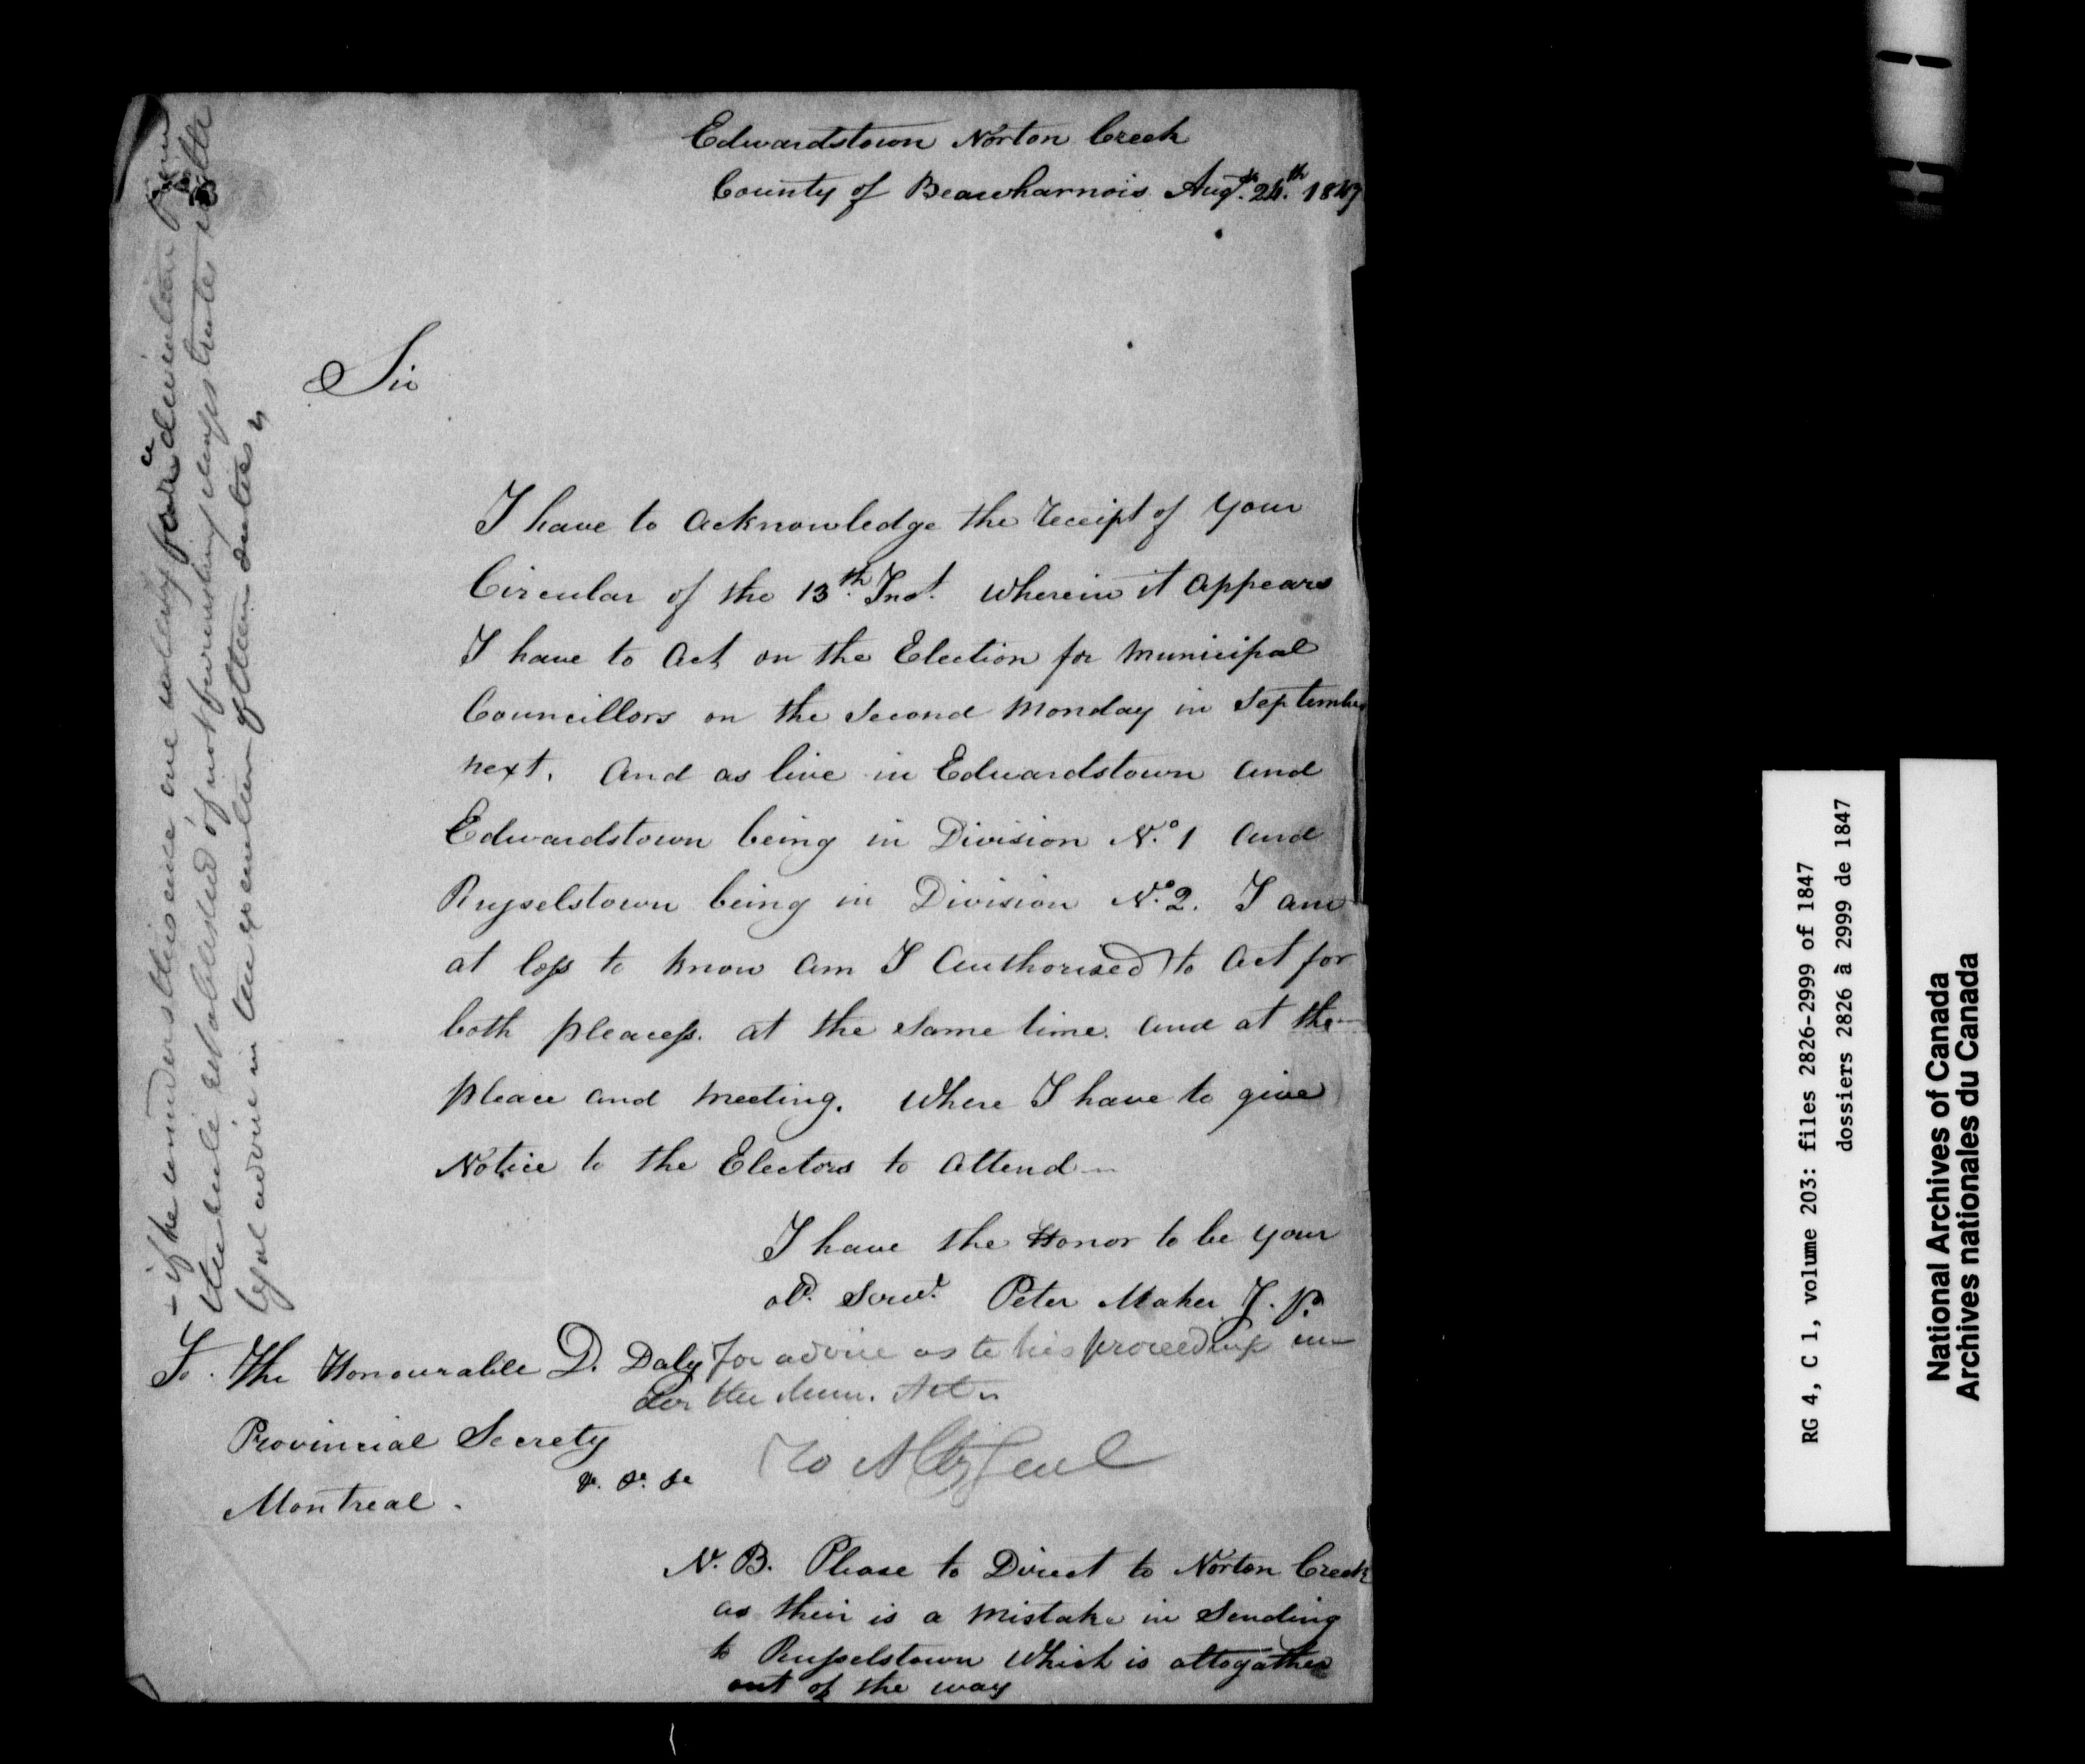 Edwardstown Norton Creek
County of Beauharnois Augt. 24th 1847
Sir
I have to acknowledge the receipt of your
Circular of the 13th Inst. wherein it appears
I have to Act on the Election for Municipal
Councillors on the Second Monday in September
next. And as live in Edwardstown and
Edwardstown being in Division No. 1 and
Russelstown being in Division No. 2. I am
at loss to know am I Authorised to Act for
both pleacess. at the same time. and at the
pleace and meeting. Where I have to give
Notice to the Electors to attend
I have the Honor to be your
obt. Servt. Peter Maher J. P.
To. The Honourable D. Daly
Provincial Secrety
&. &. &
Montreal.
for advice as to his proceedings un
der the Mun. Act
To Atty Genl
N. B. Please to Direct to Norton Creek
as their is a mistake in Sending
to Russelstown Which is altogather
out of the way
the rule established of not furnishing Magistrates with
legal advice in the execution of their duties
RG 4, C 1, volume 203: files 2826-2999 of 1847
dossiers 2826 à 2999 de 1847
National Archives of Canada
Archives nationales du Canada